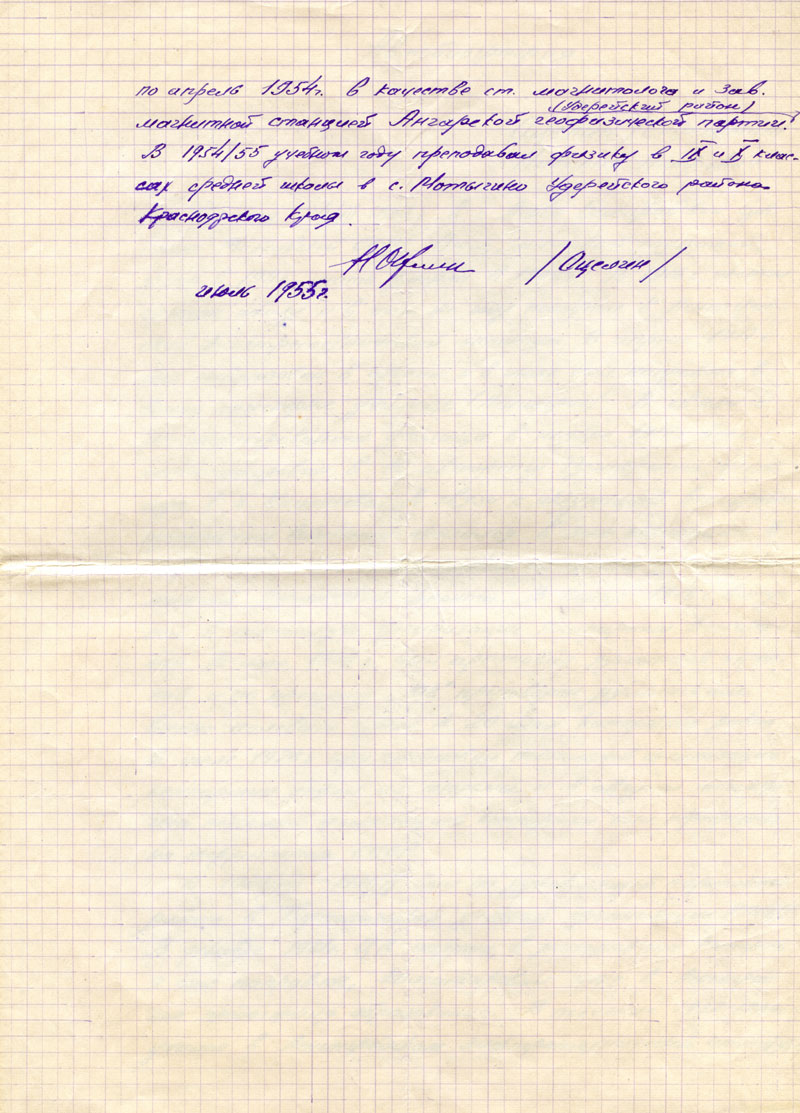 по апрель 1954г. в качестве ст. магнитолога и зав.
(Удерейский район)
магнитной станцией Ангарской геофизической партии.
В 1954/55 учебном году преподавал физику в IX и X клас-
сах средней школы в с. Мотыгино Удерейского района
Красноярского Края.
/Ощепкин/
июль 1955г.